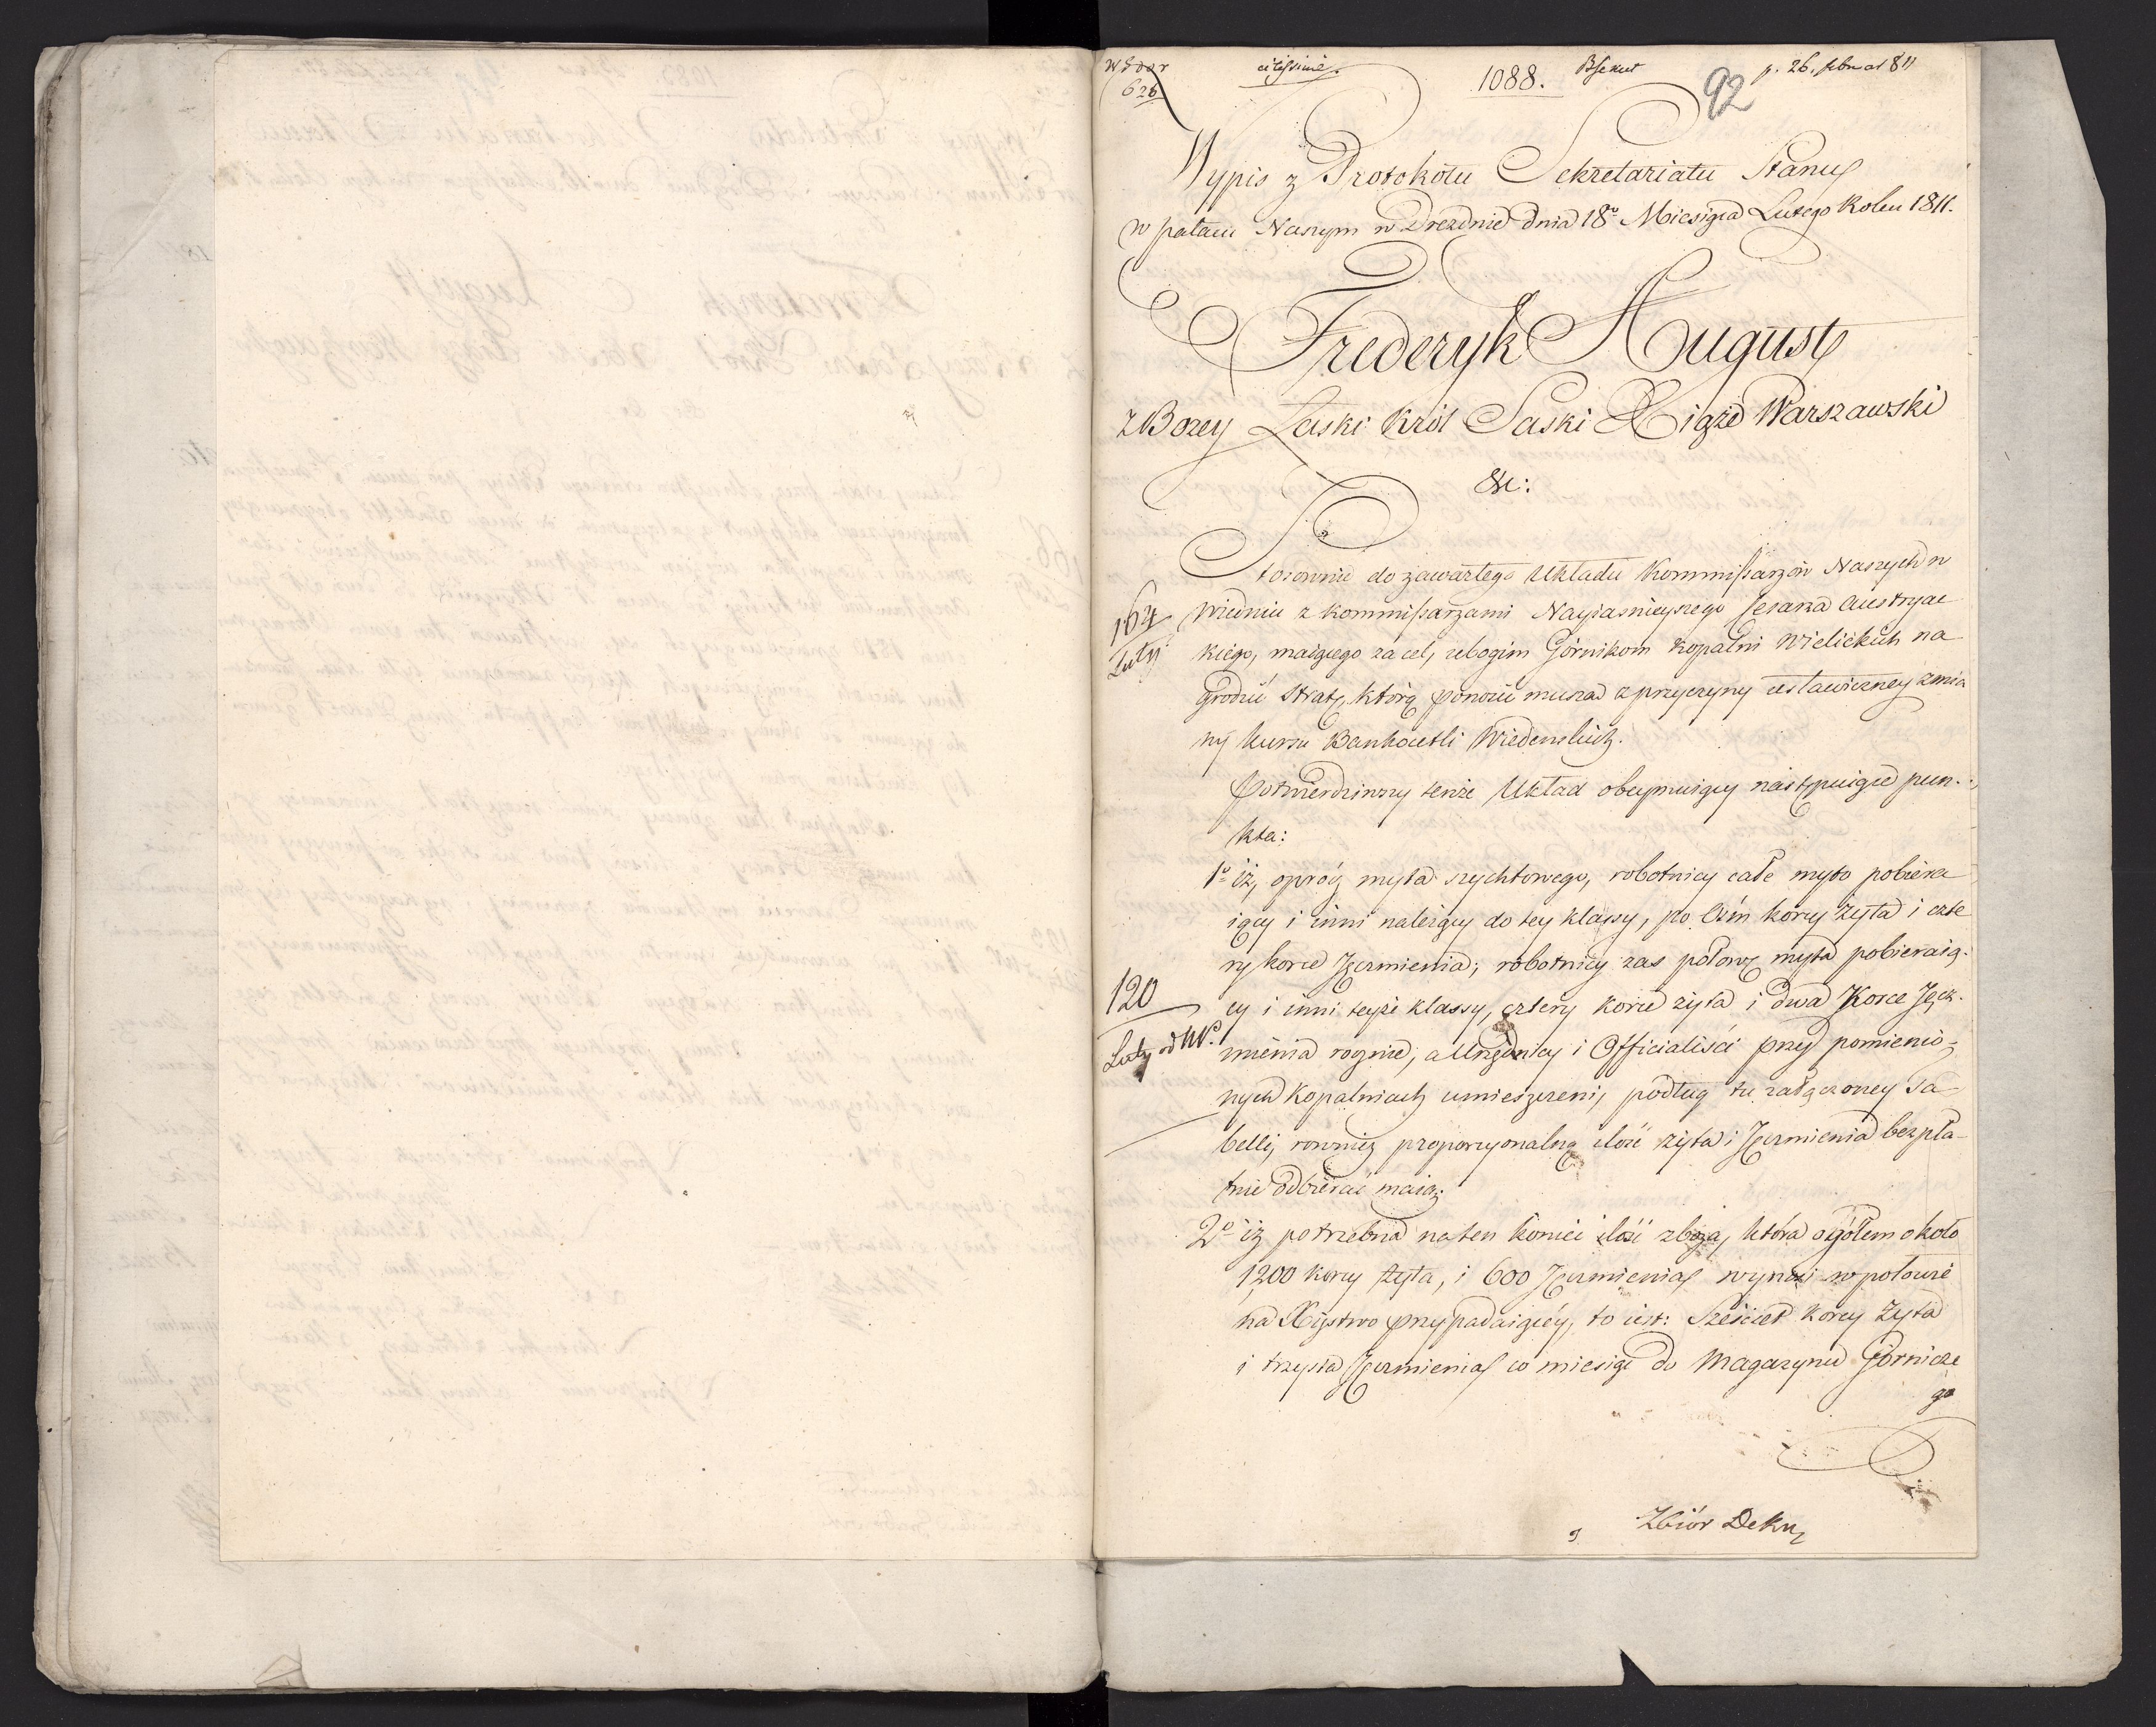 626
citissime.
1088.
92
p. 26. febru a 1811
Wypis z Protokołu Sekretariatu Stanu
w pałacu Naszym w Dreźdnie dnia 18o Miesiąca Lutego Roku 1811.
Frederyk August
z Bożey Łaski Król Saski Xiąże Warszawski
&c:
Stosownie do zawartego Układu Kommissarzów Naszych w
Wiedniu z Kommissarzami Nayiaśnieyszego Cesarza Austryac
kiego, maiącego za cel, ubogim Górnikom Kopalni Wielickich na
grodzić stratę, którą ponosić muszą z przyczyny ustawiczney zmia
ny kursu Bankocetli Wiedeńskich.
Potwierdziwszy tenże Układ obeymuiący następuiące pun-
kta:
1o iż, oprócz myta szychtowego, robotnicy całe myto pobiera
iący i inni należący do tey klassy, po ośm korcy żyta i czte
ry korce Jęczmienia; robotnicy zaś połowę myta pobieraią-
cy i inni teyże klassy, cztery korce żyta i dwa Korce Jęcz-
mienia rocznie; a Urzędnicy i Officialiści przy pomienio-
nych Kopalniach umieszczeni, podług tu załączoney Ta-
belli, również proporcyonalną ilość żyta i Jęczmienia bezpła-
tnie odbierać maią;
2o iż potrzebna na ten koniec ilość zboża, która ogółem około
1200 korcy żyta, i 600 Jęczmienia wynosi w połowie
na Xięstwo przypadaiącéy, to iest: Sześćset korcy żyta
i trzysta Jęczmienia co miesiąc do Magazynu Górnicze
go
164
Luty
120
Luty od W.
Zbiór Dekr